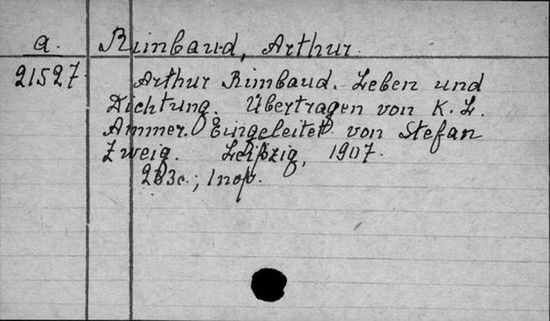 a. Rimbaud, Arthur.
21527. Arthur Rimbaud. Leben und
Dichtung. Übertragen von K. L.
Ammer. Eingeleitet von Stefan
Zweig. Leipzig, 1907.
2B3c.; 1 пор.